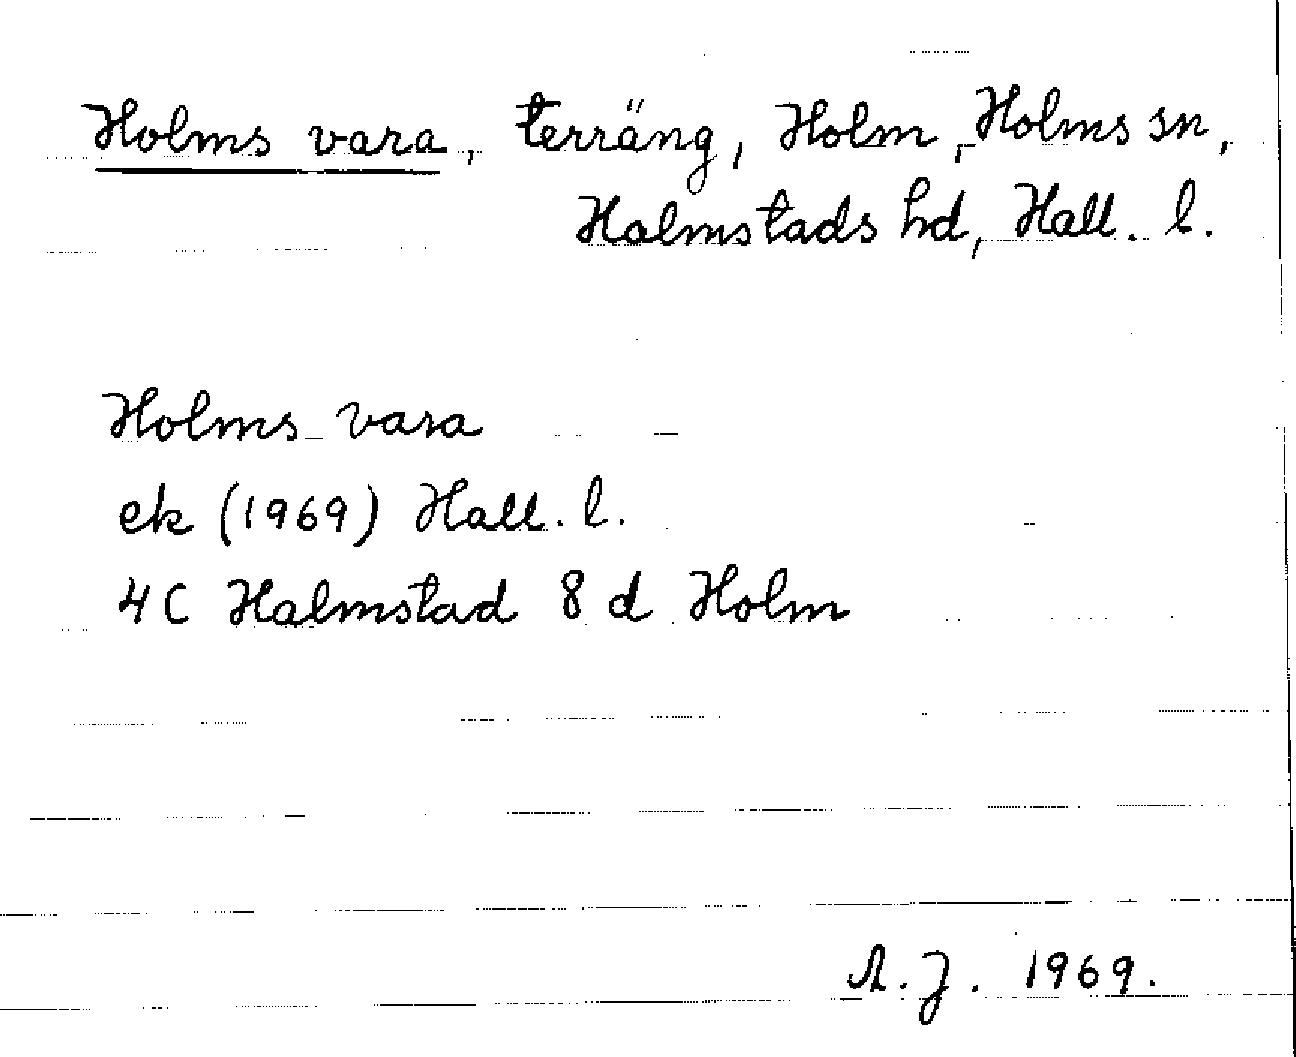 Holms vara, terräng, Holm, Holms sn,
Halmstads hd, Hall. l.
Holms vara
ek (1969) Hall. l.
4C Halmstad 8 d Holm
A. J. 1969.